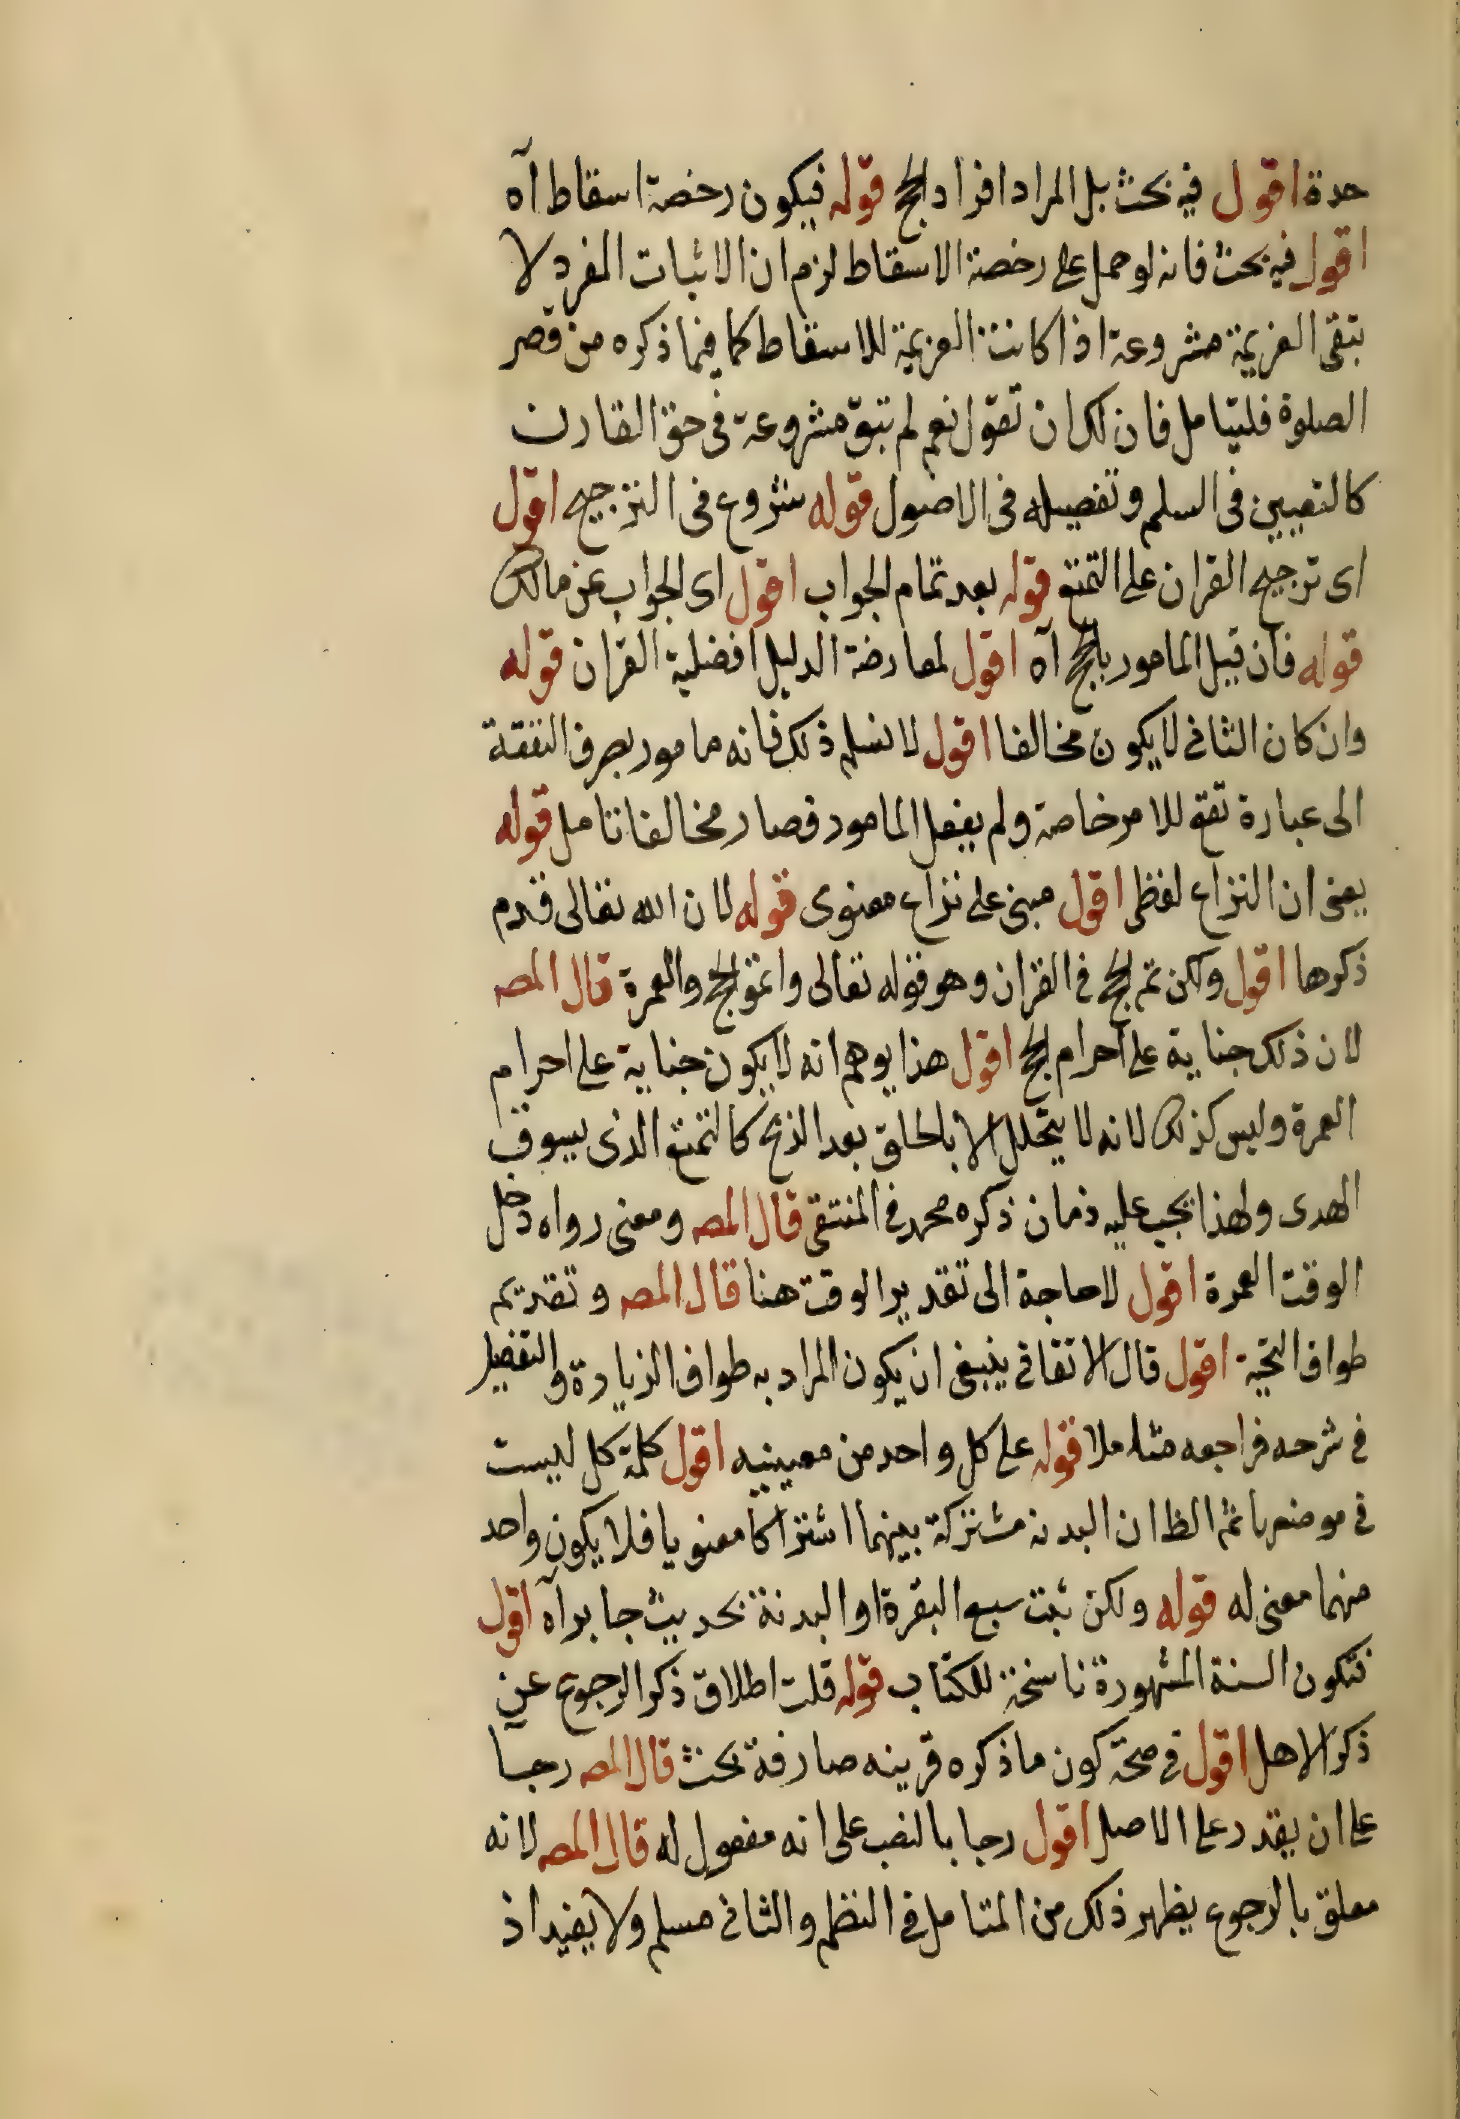 حدة اقول فيه بحث بل المراد افراد الحج قوله فيكون رخصة اسقاط آه
اقول فيه بحث فانه لو حمل على رخصة الاسقاط لزم ان الاثبات المفرد لا
تبقى العزيمة مشروعة اذا كانت العزيمة للاسقاط كما فيما ذكره من قصر
الصلوة فليتامل فان لك ان تقول نعم لم تبق مشروعة فى حق القارن
كالتعيين فى السلم وتفصيله فى الاصول قوله شروع فى الترجيح اقول
اى ترجيح القران على التمتع قوله بعد تمام الجواب اقول اى الجواب عن مالك
قوله فان قيل المامور بالحج آه اقول لمعارضة الدليل افضلية القران قوله
وان كان الثانى لا يكون مخالفا اقول لا نسلم ذلك فانه مامور بصرف النفقة
الى عبارة تقع للامر خاصة ولم يفعل المامور فصار مخالفا تامل قوله
يعنى ان النزاع لفظى اقول مبنى على نزاع معنوى قوله لان الله تعالى قدم
ذكرها اقول ولكن تم الحج فى القران وهو قوله تعالى واتموا الحج والعمرة قال المصـ
لان ذلك جناية على احرام الحج اقول هذا يوهم انه لا يكون جناية على احرام
العمرة وليس كذلك لانه لا يتحلل الا بالحلق بعد الذبح كالتمتع الذى يسوق
الهدى ولهذا يجب عليه دمان ذكره محمد فى المنتقى قال المصـ ومعنى رواه دخل
الوقت العمرة اقول لا حاجة الى تقدير الوقت هنا قال المصـ وتقديم
طواف التحية اقول قال الاتقانى ينبغى ان يكون المراد به طواف الزيارة والتفصيل
فى شرحه فراجعه متاملا قوله على كل واحد من معينيه اقول كلمة كل ليست
فى موضعها ثم الظ ان البدنة مشتركة بينهما اشتراكا معنويا فلا يكون واحد
منهما معنى له قوله ولكن ثبت سبع البقرة او البدنة بحديث جابر آه اقول
فتكون السنة المشهورة ناسخة للكتاب قوله قلت اطلاق ذكر الرجوع عن
ذكر الاهل اقول فى صحة كون ما ذكره قرينه صارفة بحث قال المصـ رجـا
على ان يقدر على الاصل اقول رجا بالنصب على انه مفعول له قال المصـ لانه
معلق بالرجوع يظهر ذلك من المتامل فى النظم والثانى مسلم ولا يفيد اذ